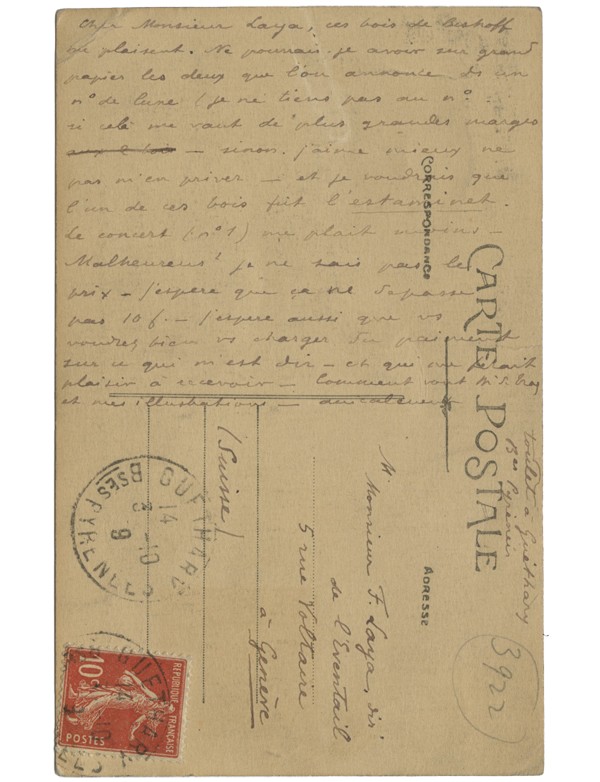 Cher Monsieur Laya, ces bois de Bischoff
me plaisent. Ne pourrais-je avoir sur grand
papier les deux que l'on annonce ds un
n° de luxe (je ne tiens pas au n°.
si cela me vaut de plus grandes marges
— sinon. j'aime mieux ne
pas m'en priver — et je voudrais que
l'un de ces bois fut l'estaminet.
Le concert (n° 1) me plait moins.
Malheureust je ne sais pas le
prix — j'espère que ça ne dépasse
pas 10 f. — J'espère aussi que vs
voudrez bien vs charger du paiement
sur ce qui m'est dû — et qui me ferait
plaisir à recevoir — Comment vont
et mes illustrations — amicalement
CARTE POSTALE
CORRESPONDANCE
ADRESSE
toulet à Guéthary
Bses Pyrénées
M Monsieur F. Laya, dir
de l'Eventail
5 rue Voltaire
à Genève
(Suisse)
3922
GUÉTHARY
14
3 -10
9
BSES PYRENEES
RÉPUBLIQUE FRANÇAISE
10c
POSTES
GUETHARY